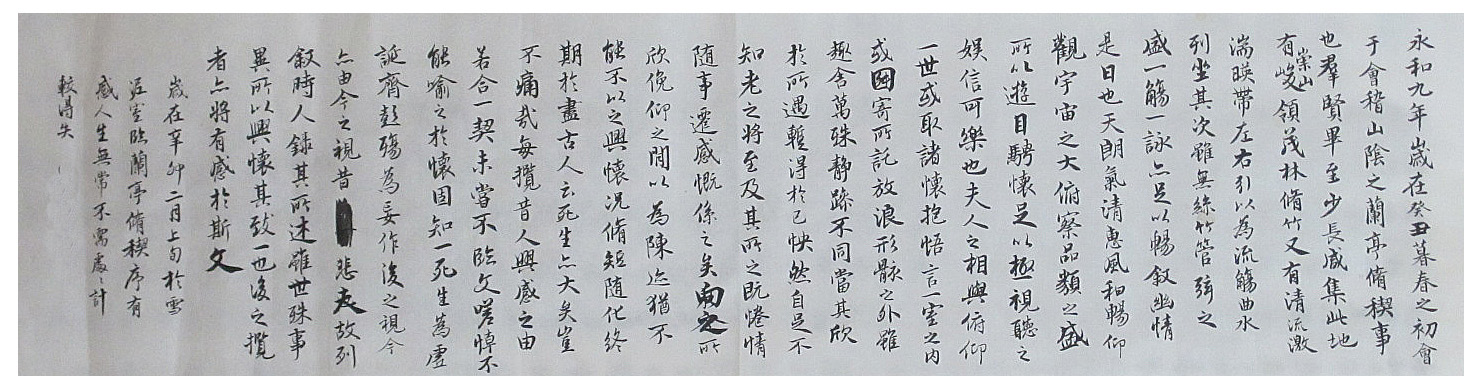 永和九年歲在癸丑暮春之初會
于會稽山陰之蘭亭脩稧事
也羣賢畢至少長咸集此地
有崇山峻領茂林脩竹又有清流激
湍暎帶左右引以為流觴曲水
列坐其次雖無絲竹管弦之
盛一觴一詠亦足以暢敘幽情
是日也天朗氣清惠風和暢仰
觀宇宙之大俯察品類之盛
所以遊目騁懷足以極視聽之
娛信可樂也夫人之相與俯仰
一世或取諸懷抱悟言一室之內
或因寄所託放浪形骸之外雖
趣舍萬殊靜躁不同當其欣
於所遇暫得於己怏然自足不
知老之將至及其所之既惓情
隨事遷感慨係之矣向之所
欣俛仰之閒以為陳迹猶不
能不以之興懷況脩短隨化終
期於盡古人云死生亦大矣豈
不痛哉每攬昔人興感之由
若合一契未嘗不臨文嗟悼不
能喻之於懷固知一死生為虛
誕齊彭殤為妄作後之視今
亦由今之視昔悲夫故列
敘時人錄其所述雖世殊事
異所以興懷其致一也後之攬
者亦將有感於斯文
歲在辛卯二月上旬於雪
泥室臨蘭亭脩稧序有
感人生無常不需處々計
較得失